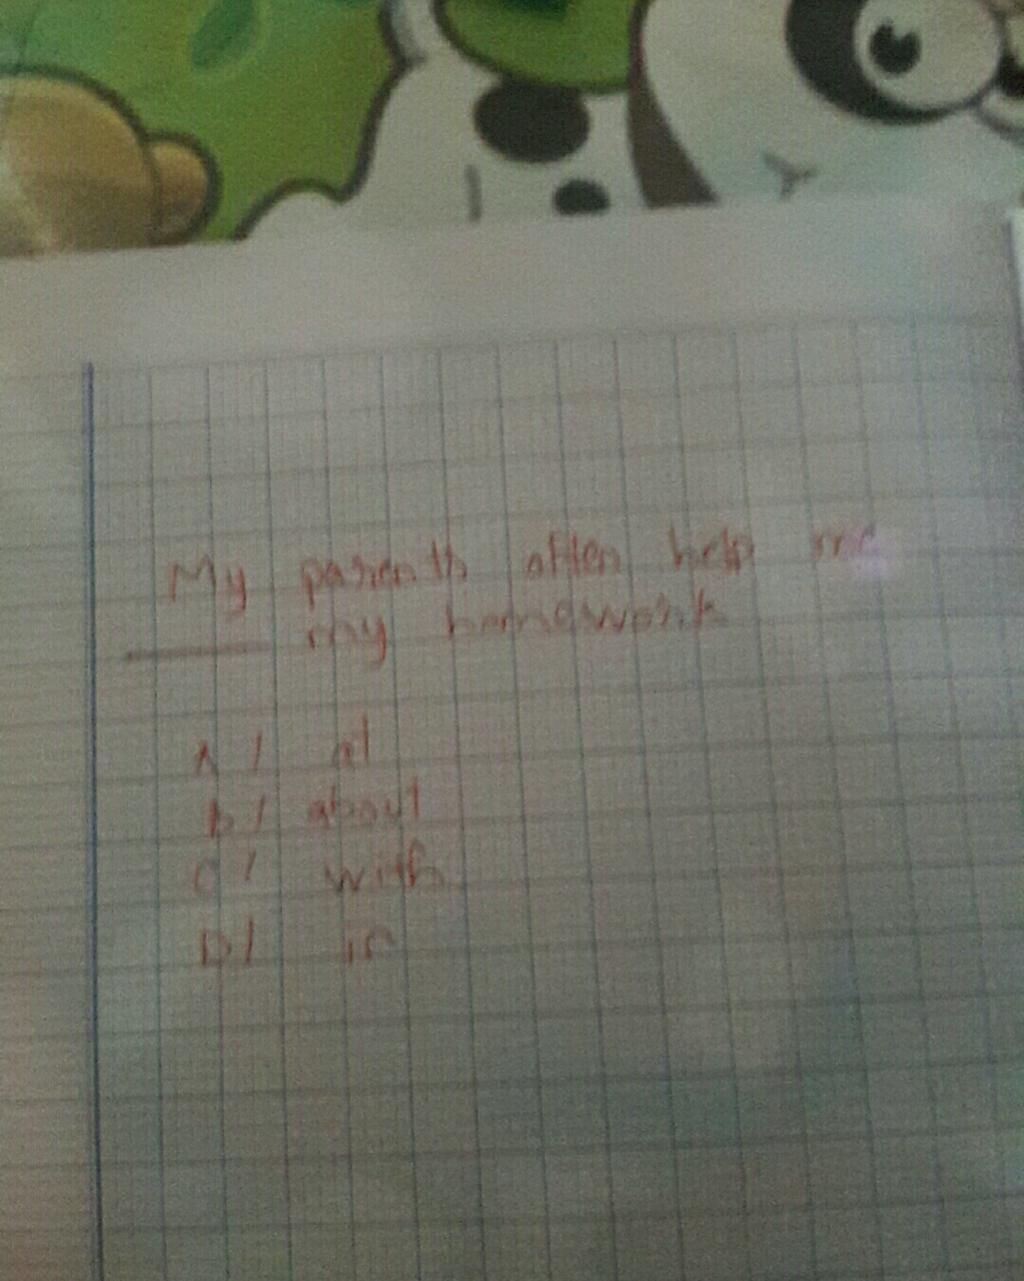 My parents often help me
______ my homework
A / at
b / about
C / with
D / in